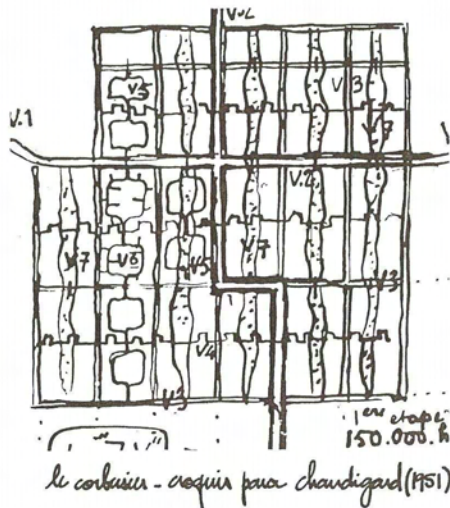 V.2
V5
V3
V.1
V7
V.2
V7
V6
V5
V7
V3
V4
V3
1ère etape
150.000.h
le corbusier - croquis para chandigard (1951)